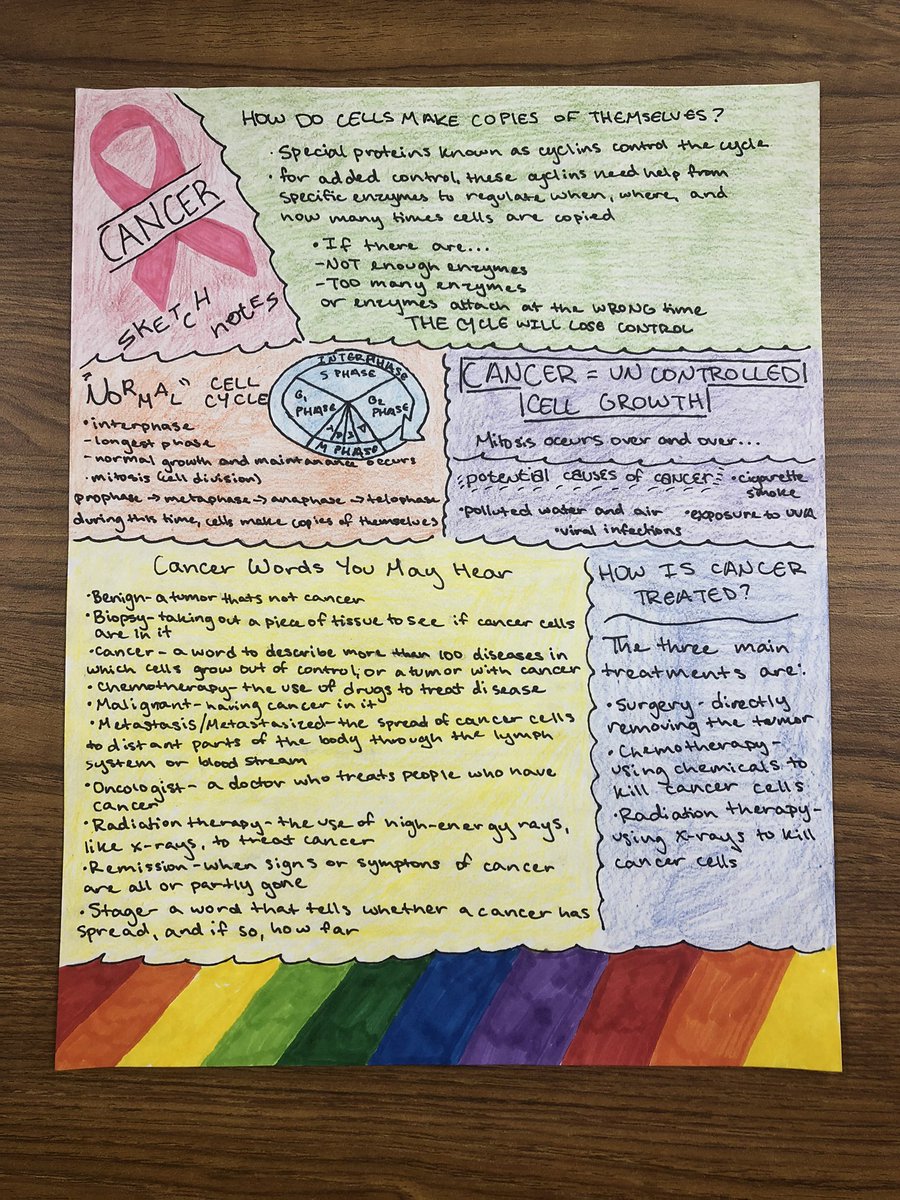 CANCER
SKETCH
notes
HOW DO CELLS MAKE COPIES OF THEMSELVES?
• Special proteins known as cyclins control the cycle
• for added control, these cyclins need help from
specific enzymes to regulate when, where, and
how many times cells are copied
• If there are...
-NOT enough enzymes
-TOO many enzymes
or enzymes attach at the WRONG time
THE CYCLE WILL LOSE CONTROL
"NORMAL" CELL
CYCLE
• interphase
- longest phase
- normal growth and maintanance occurs
• mitosis (cell division)
prophase → metaphase → anaphase → telophase
during this time, cells make copies of themselves
INTERPHASE
S PHASE
G1
PHASE
G2
PHASE
M PHASE
CANCER = UNCONTROLLED
CELL GROWTH
Mitosis occurs over and over...
potential causes of cancer
• cigarette
smoke
• polluted water and air
• exposure to UVA
• viral infections
Cancer Words You May Hear
• Benign- a tumor thats not cancer
• Biopsy- taking out a piece of tissue to see if cancer cells
are in it
• Cancer- a word to describe more than 100 diseases in
which cells grow out of control, or a tumor with cancer
• Chemotherapy- the use of drugs to treat disease
• Malignant- having cancer in it
• Metastasis/Metastasized- the spread of cancer cells
to distant parts of the body through the lymph
system or blood stream
• Oncologist- a doctor who treats people who have
cancer
• Radiation therapy- the use of high-energy rays,
like x-rays, to treat cancer
• Remission- when signs or symptoms of cancer
are all or partly gone
• Stage- a word that tells whether a cancer has
spread, and if so, how far
HOW IS CANCER
TREATED?
The three main
treatments are:
• Surgery- directly
removing the tumor
• Chemotherapy-
using chemicals to
kill cancer cells
• Radiation therapy-
using x-rays to kill
cancer cells